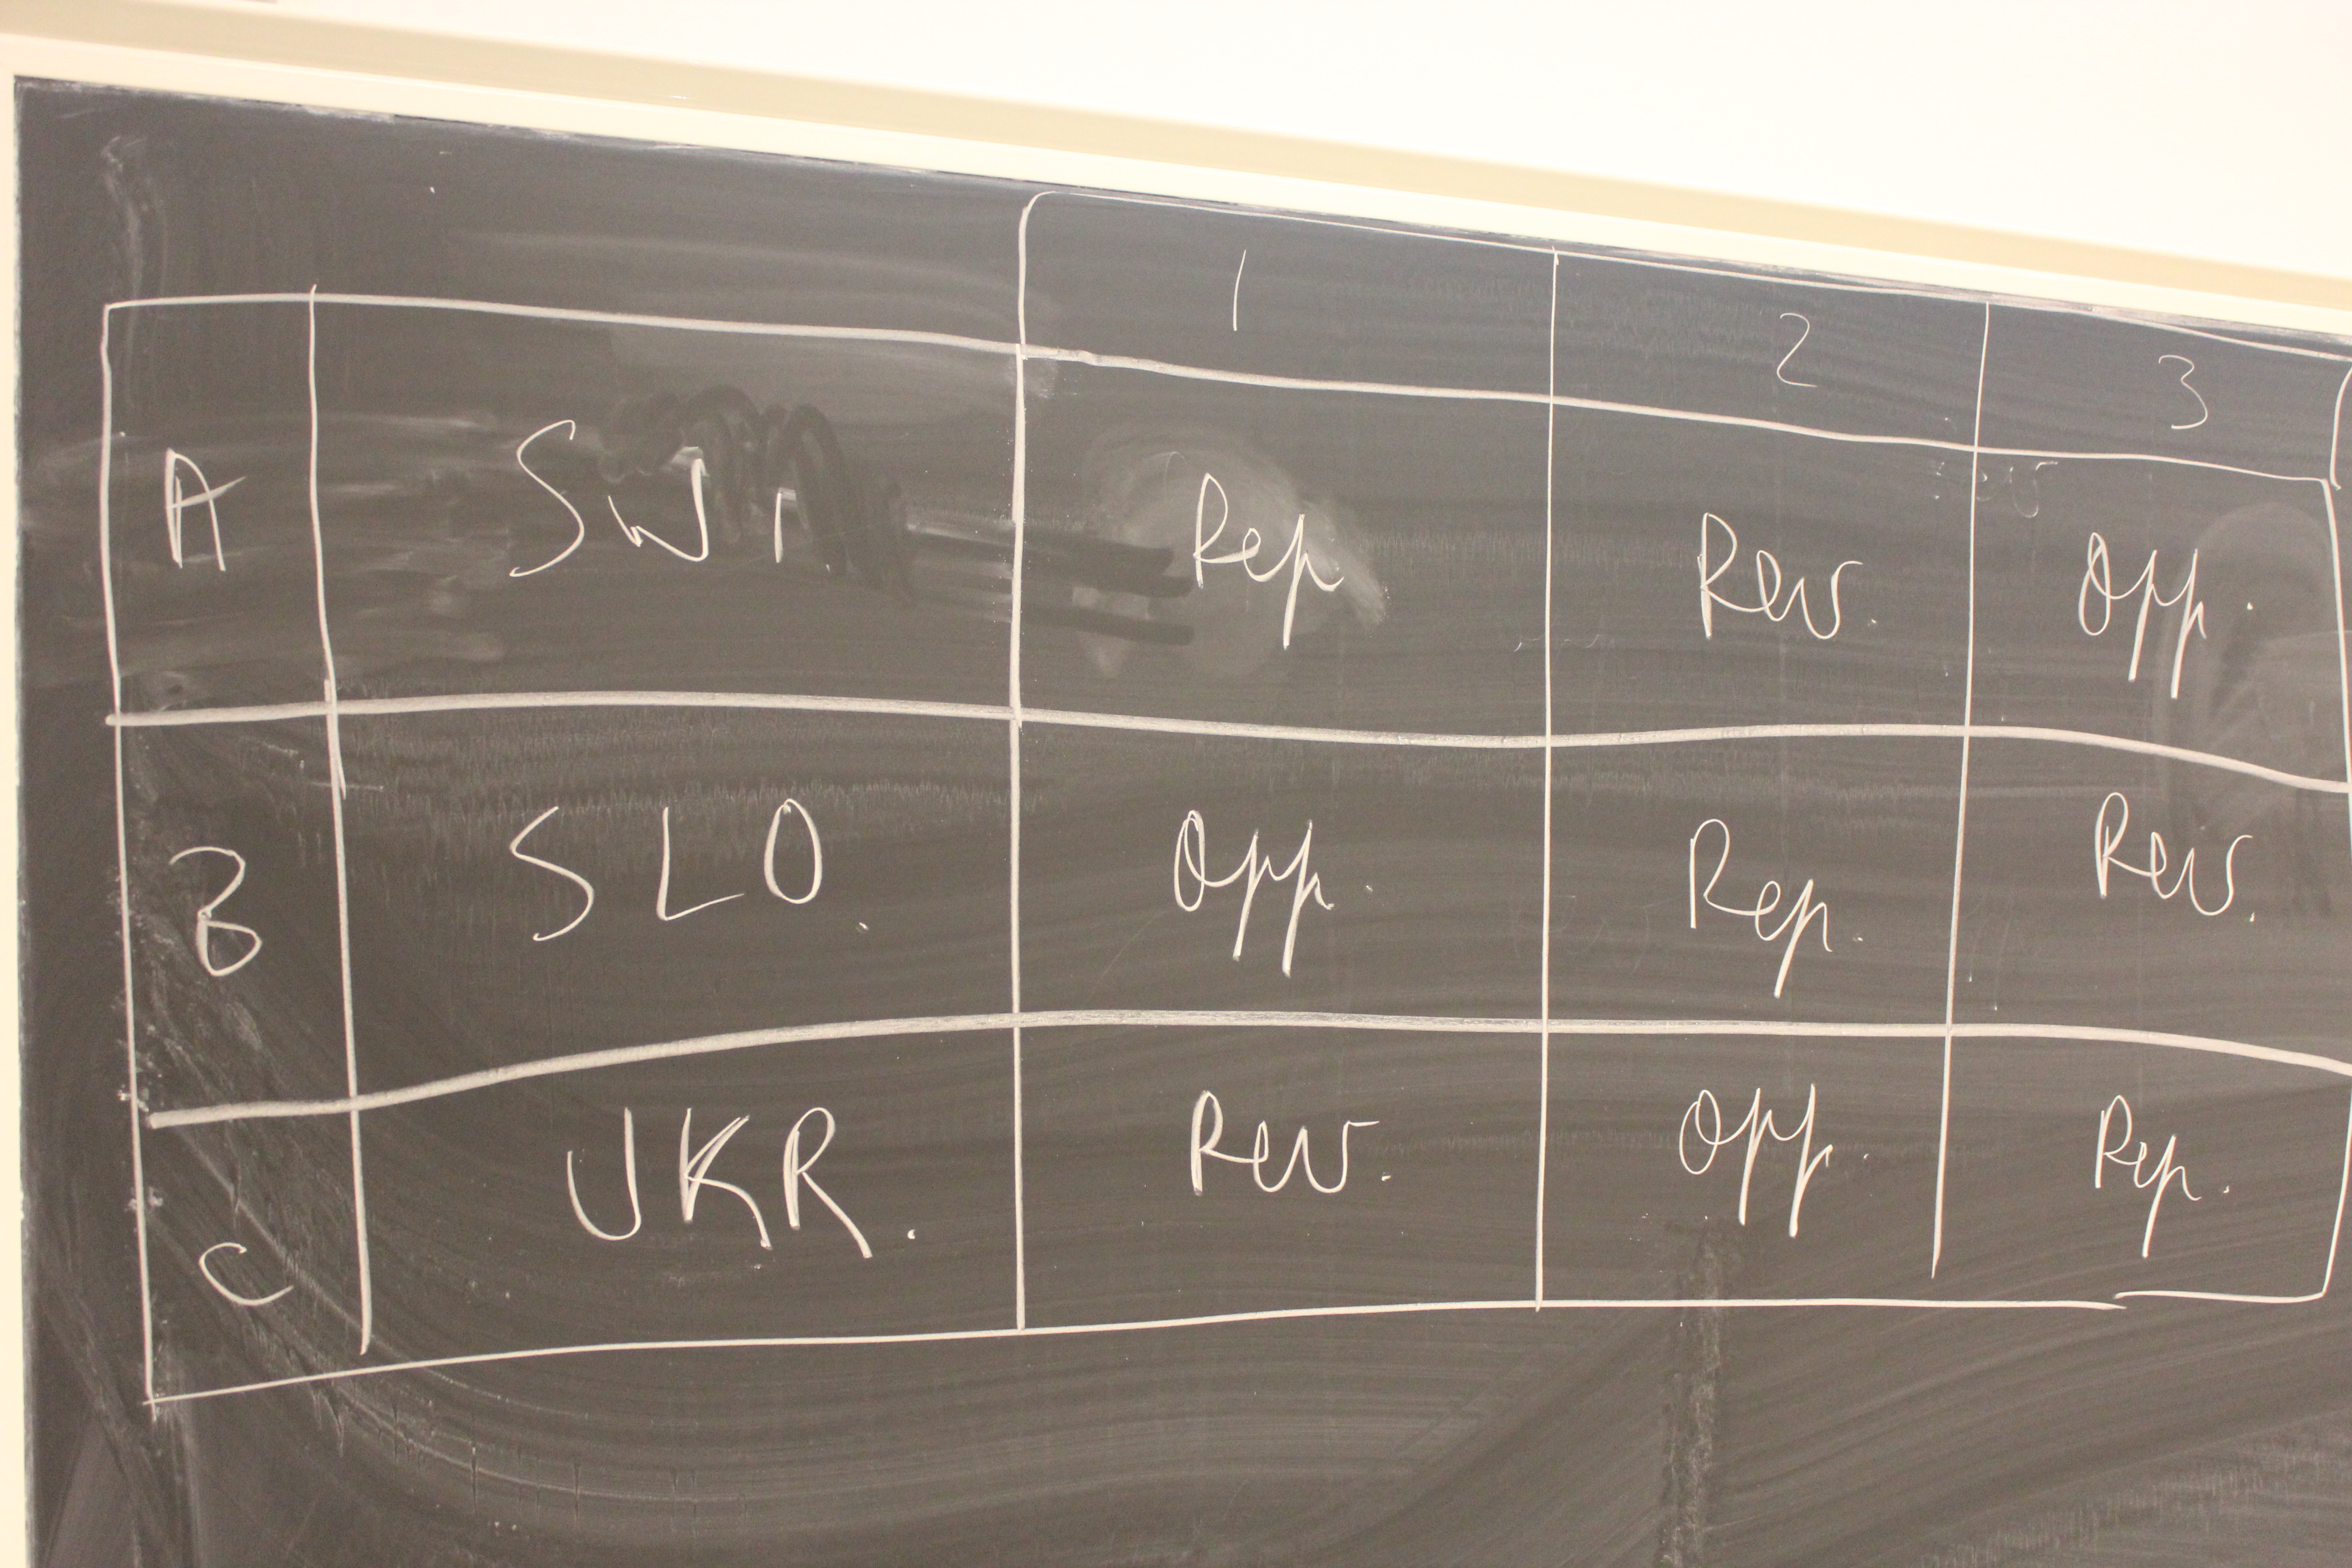 1 2 3
A SWI Rep Rev. Opp.
B SLO. Opp. Rep. Rev.
C UKR. Rev. Opp. Rep.